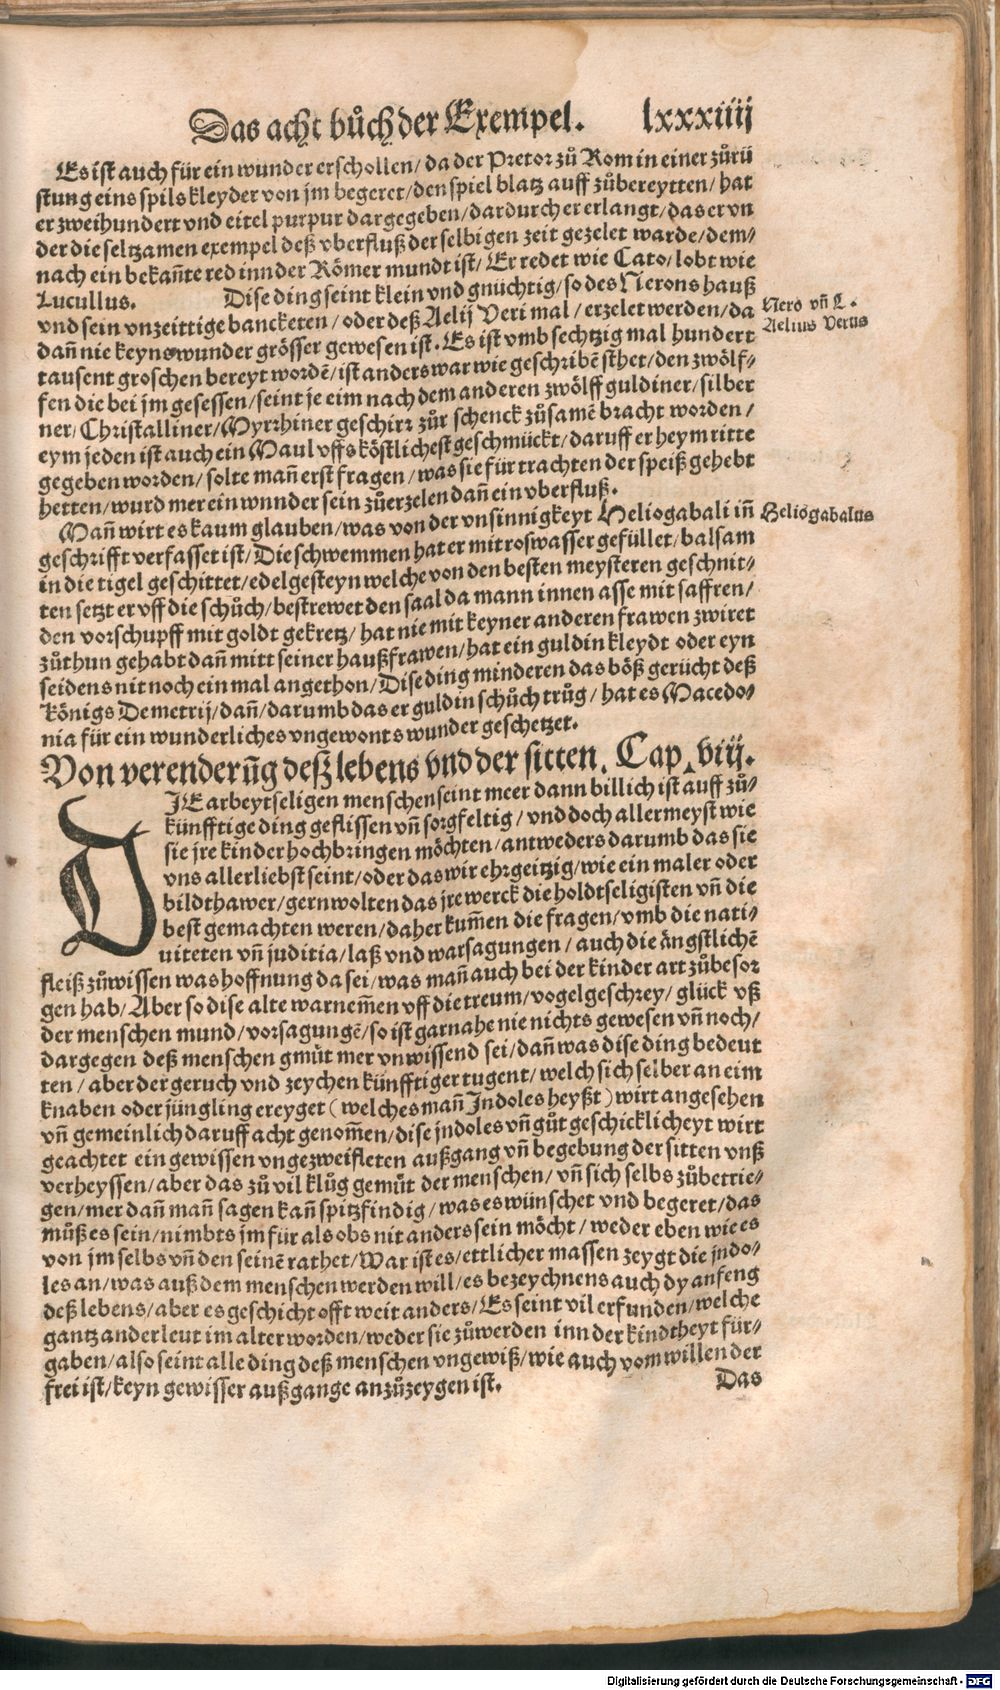 Das acht bůch der Exempel. lxxxiiij
Es ist auch für ein wunder erschollen/ da der Pretor zů Rom in einer zůrü
stung eins spils kleyder von jm begeret/ den spiel blatz auff zůbereytten/ hat
er zweihundert vnd eitel purpur dargegeben/ dardurch er erlangt/ das er vn
der die seltzamen exempel deß vberfluß der selbigen zeit gezelet warde/ dem⸗
nach ein bekañte red inn der Römer mundt ist/ Er redet wie Cato/ lobt wie
Lucullus. Dise ding seint klein vnd gnüchtig/ so des Nerons hauß
vnd sein vnzeittige bancketen/ oder deß Aelij Veri mal/ erzelet werden/ da
Nero vñ L.
Aelius Verus
dañ nie keyns wunder grösser gewesen ist. Es ist vmb sechtzig mal hundert
tausent groschen bereyt wordẽ/ ist anders war wie geschribẽ sthet/ den zwölf⸗
fen die bei jm gesessen/ seint je eim nach dem anderen zwölff guldiner/ silber
ner/ Christalliner/ Myrrhiner geschirr zůr schenck zůsamẽ bracht worden/
eym jeden ist auch ein Maul vffs köstlichest geschmückt/ daruff er heym ritte
gegeben worden/ solte mañ erst fragen/ was sie für trachten der speiß gehebt
hetten/ wurd mer ein wunder sein zůerzelen dañ ein vberfluß.
Mañ wirt es kaum glauben/ was von der vnsinnigkeyt Heliogabali iñ
Heliogabalus
geschrifft verfasset ist/ Die schwemmen hat er mit roswasser gefüllet/ balsam
in die tigel geschittet/ edelgesteyn welche von den besten meysteren geschnit⸗
ten setzt er vff die schůch/ bestrewet den saal da mann innen asse mit saffren/
den vorschupff mit goldt gekretz/ hat nie mit keyner anderen frawen zwiret
zůthun gehabt dañ mitt seiner haußfrawen/ hat ein guldin kleydt oder eyn
seidens nit noch ein mal angethon/ Dise ding minderen das böß gerücht deß
Königs Demetrij/ dañ/ darumb das er guldin schůch trůg/ hat es Macedo⸗
nia für ein wunderliches vngewonts wunder geschetzet.
Von verenderũg deß lebens vnd der sitten. Cap. viij.
DJE arbeytseligen menschen seint meer dann billich ist auff zů⸗
künfftige ding geflissen vñ sorgfeltig/ vnd doch allermeyst wie
sie jre kinder hochbringen möchten/ antweders darumb das sie
vns allerliebst seint/ oder das wir ehrgeitzig/ wie ein maler oder
bildthawer/ gern wolten das jre werck die holdtseligisten vñ die
best gemachten weren/ daher kum̃en die fragen/ vmb die nati⸗
uiteten vñ juditia/ laß vnd warsagungen/ auch die ängstlichẽ
fleiß zůwissen was hoffnung da sei/ was mañ auch bei der kinder art zůbesor
gen hab/ Aber so dise alte warnem̃en vff die treum/ vogelgeschrey/ glück vß
der menschen mund/ vorsagungẽ/ so ist gar nahe nie nichts gewesen vñ noch/
dargegen deß menschen gmüt mer vnwissend sei/ dañ was dise ding bedeut
ten/ aber der geruch vnd zeychen künfftiger tugent/ welch sich selber an eim
knaben oder jüngling ereyget (welches mañ Indoles heyßt) wirt angesehen
vñ gemeinlich daruff acht genom̃en/ dise jndoles vñ gůt geschicklicheyt wirt
geachtet ein gewissen vngezweifleten außgang vñ begebung der sitten vnß
verheyssen/ aber das zů vil klůg gemüt der menschen/ vñ sich selbs zůbetrie⸗
gen/ mer dañ mañ sagen kañ spitzfindig/ was es wünschet vnd begeret/ das
můß es sein/ nimbts jm für als obs nit anders sein möcht/ weder eben wie es
von jm selbs vñ den seinẽ rathet/ War ist es/ ettlicher massen zeygt die jndo⸗
les an/ was auß dem menschen werden will/ es bezeychnens auch dy anfeng
deß lebens/ aber es geschicht offt weit anders/ Es seint vil erfunden/ welche
gantz ander leut im alter worden/ weder sie zůwerden inn der kindtheyt für⸗
gaben/ also seint alle ding deß menschen vngewiß/ wie auch vom willen der
frei ist/ keyn gewisser außgange anzůzeygen ist.
Das
Digitalisierung gefördert durch die Deutsche Forschungsgemeinschaft - DFG